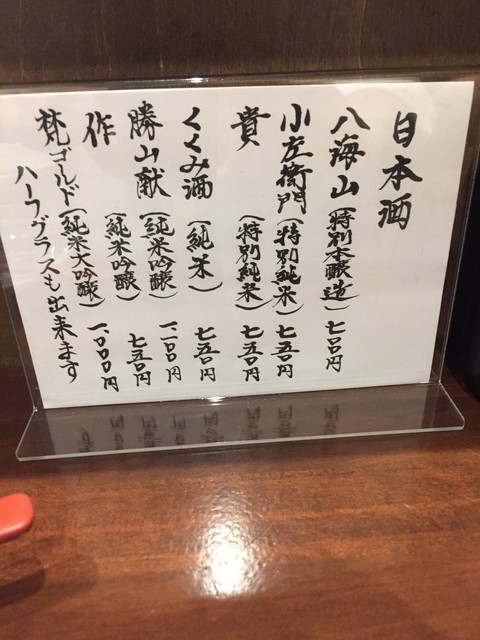 日本酒
八海山（特別本醸造）七〇〇円
小左衛門（特別純米）七五〇円
貴（特別純米）七五〇円
くくみ酒（純米）七五〇円
勝山献（純米吟醸）一、二〇〇円
作（純米吟醸）七五〇円
梵ゴールド（純米大吟醸）一、〇〇〇円
ハーフグラスも出来ます